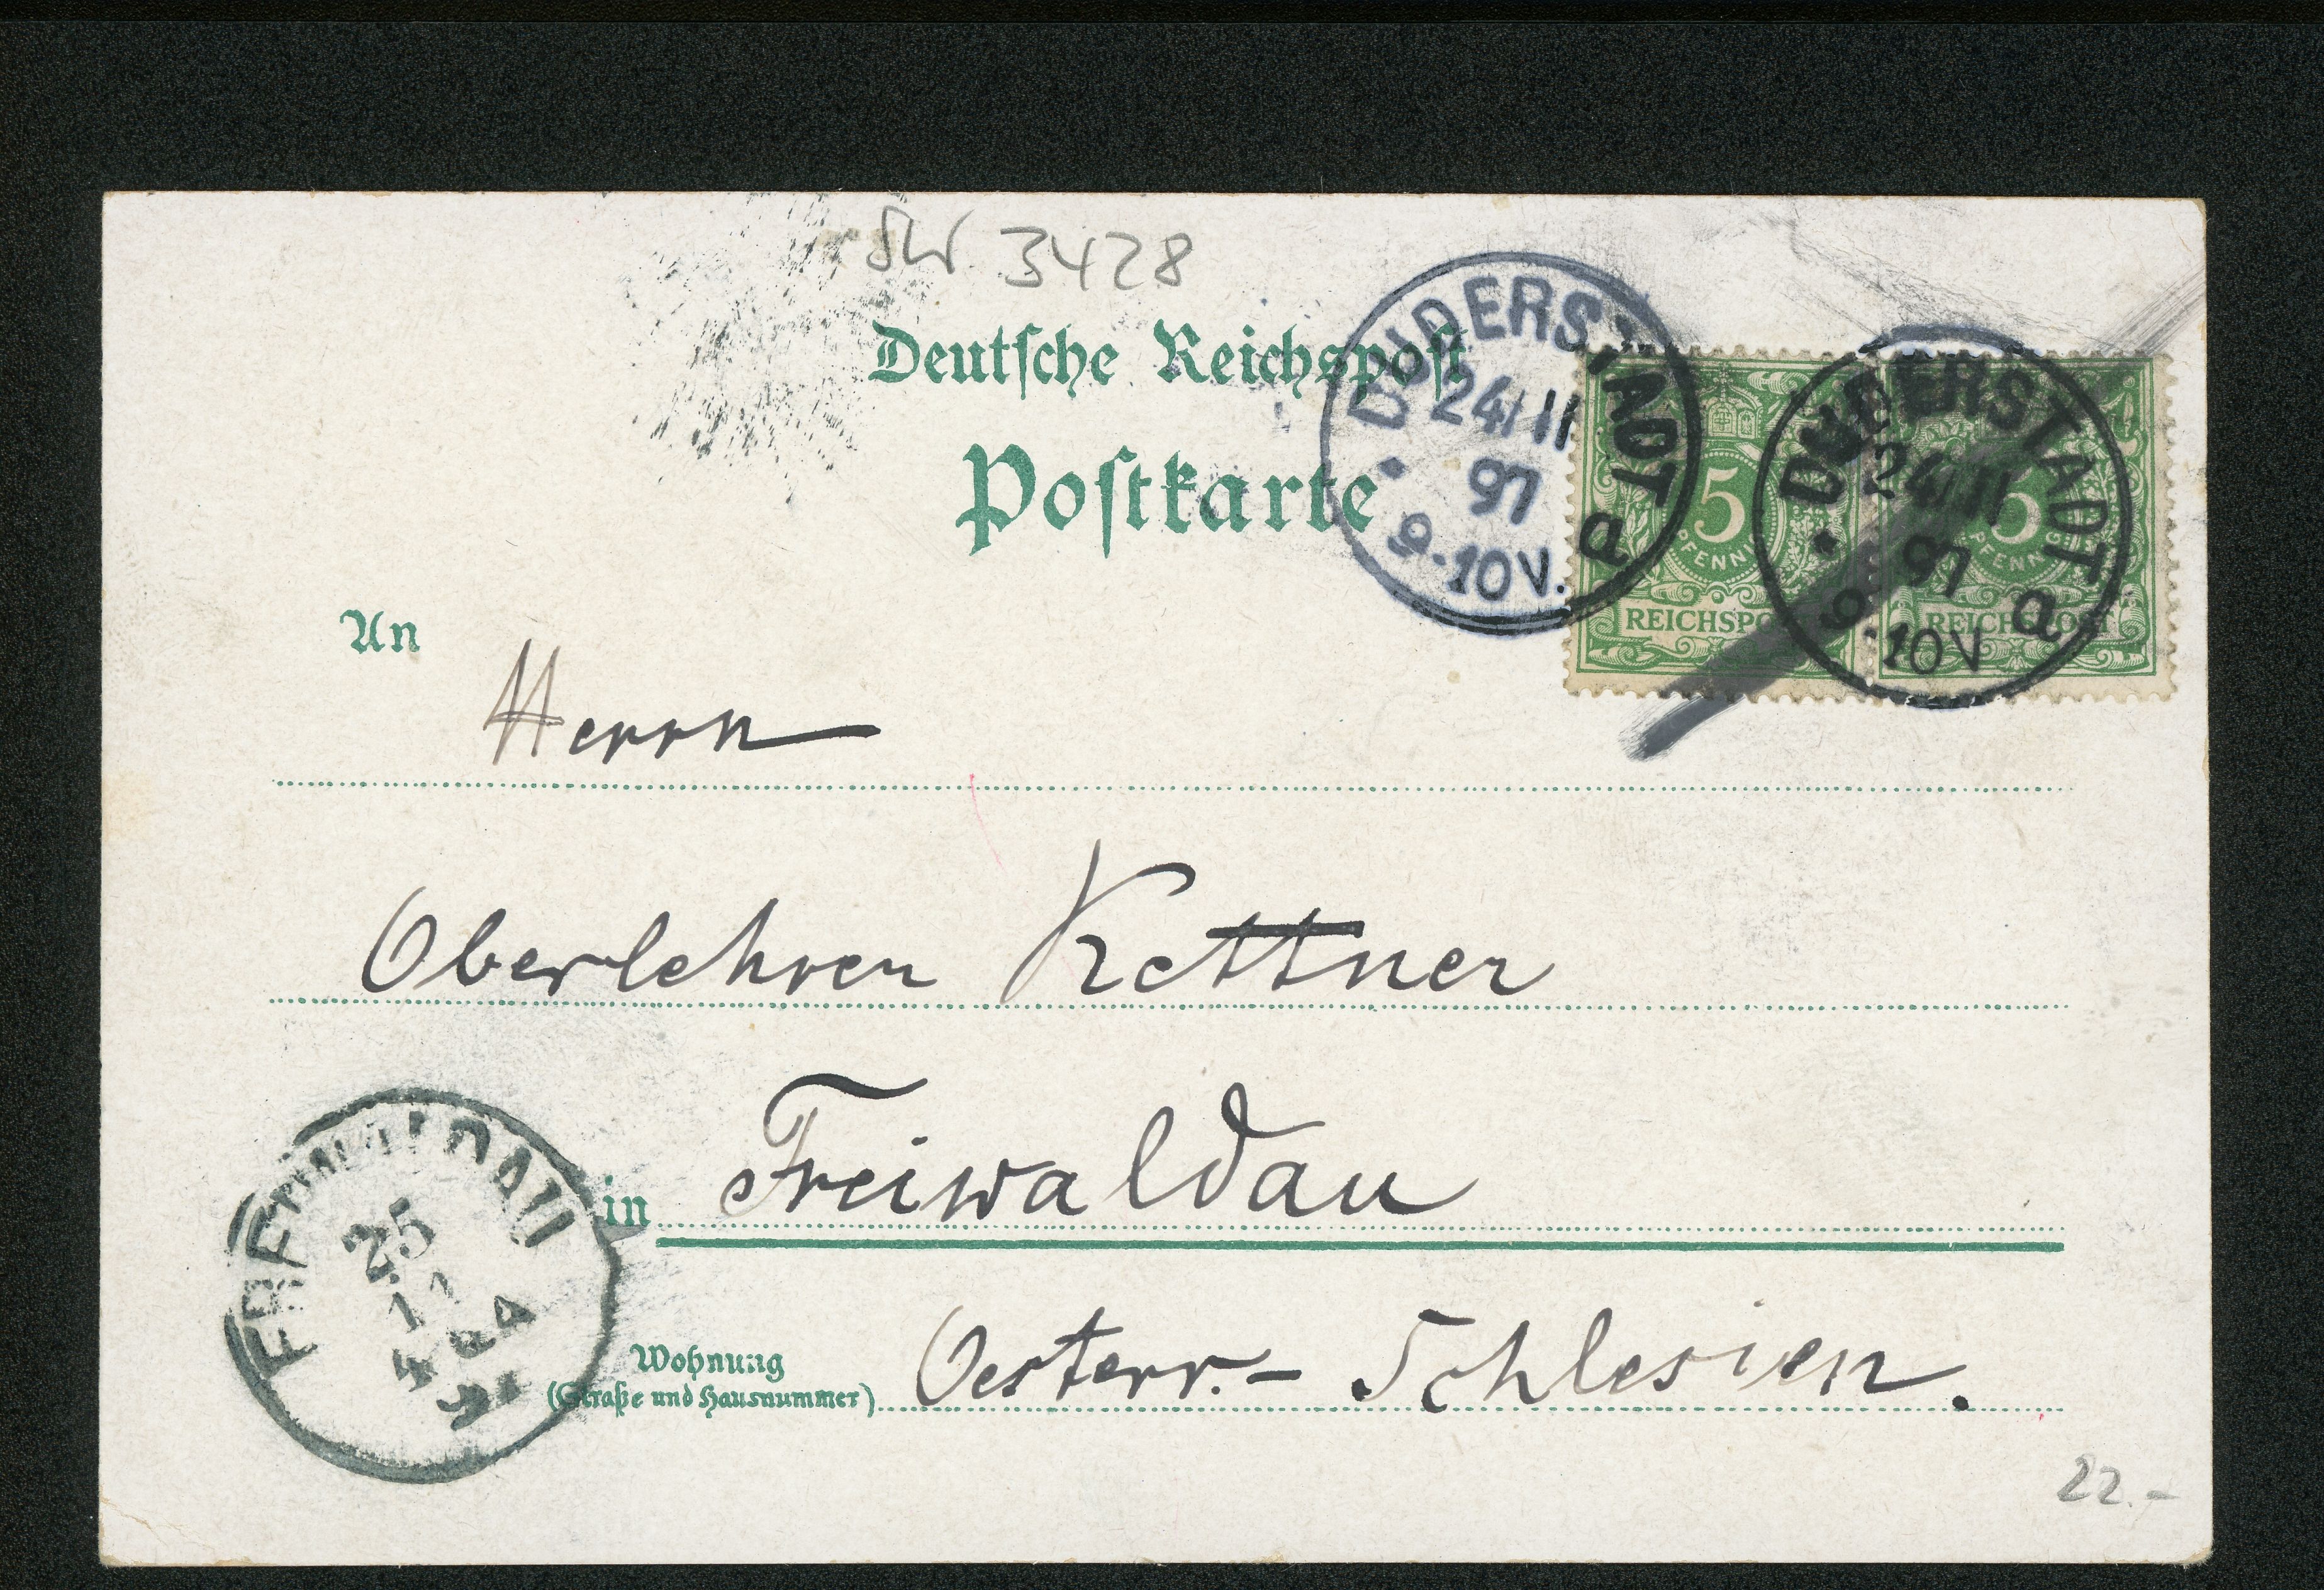 3428
Deutsche Reichspost
Postkarte
DUDERSTADT
24/11
97
9-10V.
a
5
PFENNIG
REICHSPOST
DUDERSTADT
24/11
97
9-10V
a
5
PFENNIG
REICHSPOST
An
Herrn
Oberlehrer Kettner
in Freiwaldau
FREIWALDAU
25
11
Wohnung
(Straße und Hausnummer)
Oesterr.- Schlesien.
22.-